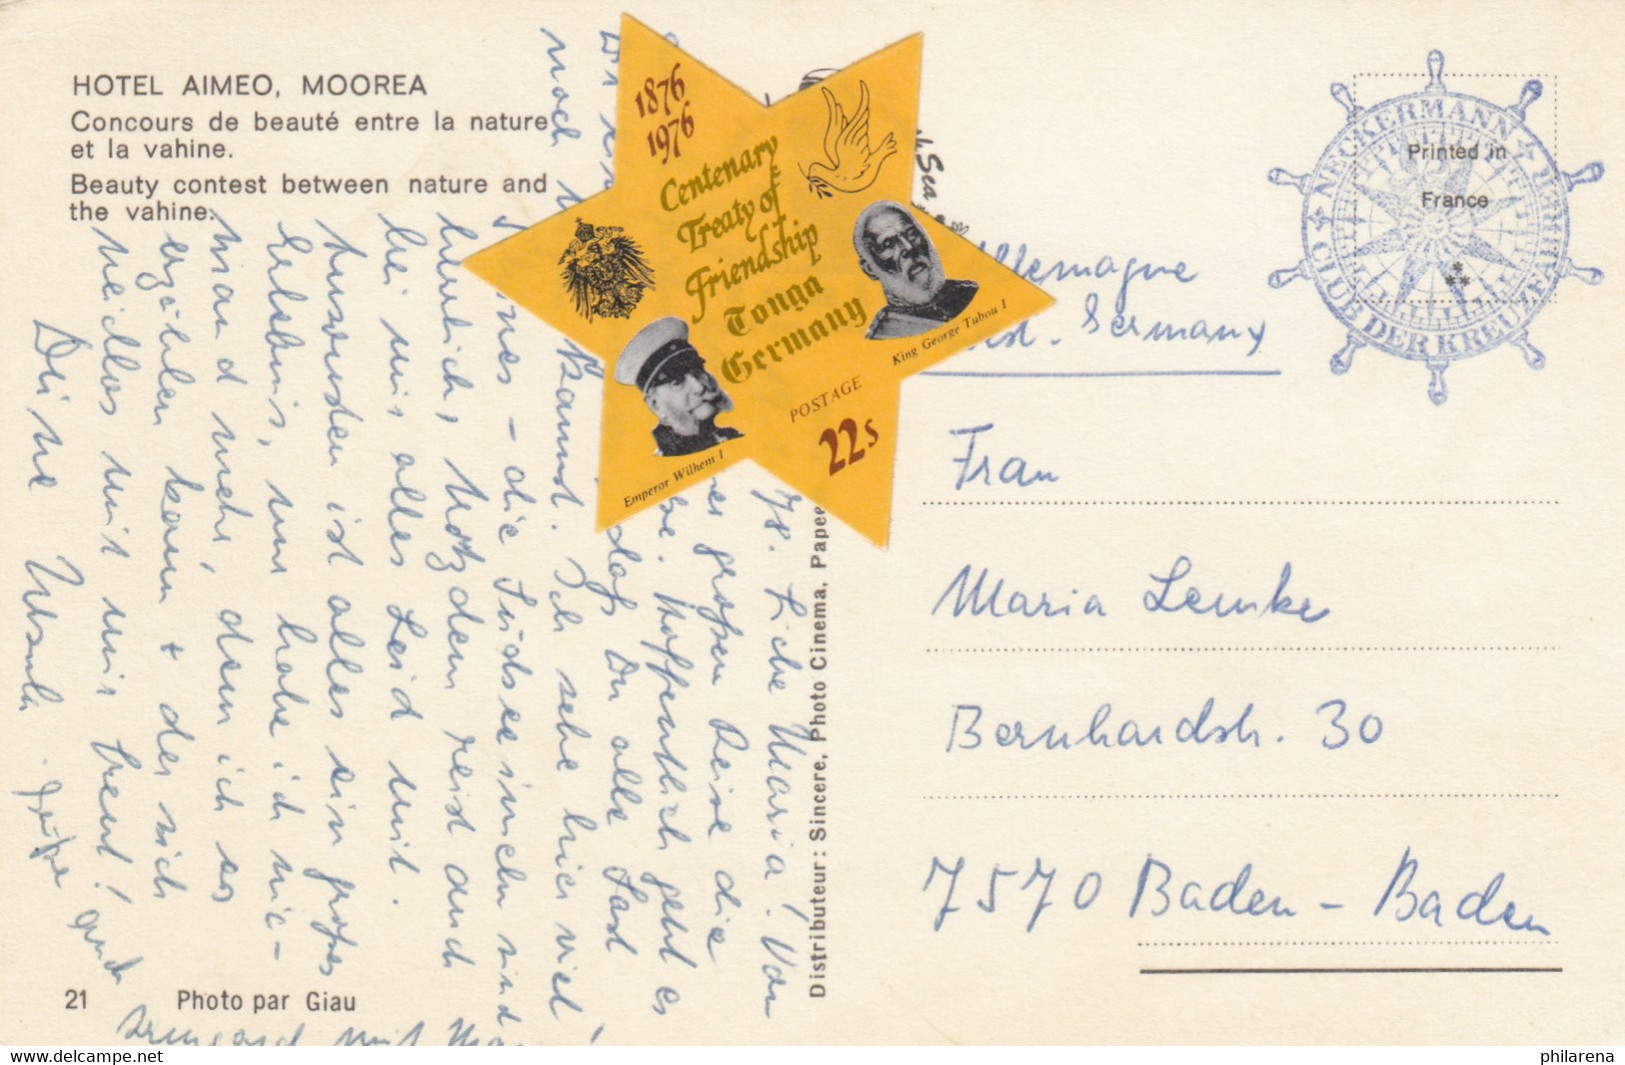 HOTEL AIMEO, MOOREA
Concours de beauté entre la nature
et la vahine.
Beauty contest between nature and
the vahine.
1876
1976
Centenary
Treaty of
Friendship
Tonga
Germany
King George Tubou I
Emperor Wilhem I
POSTAGE
22s
Sea
NECKERMANN
CLUB DER KREUZFAHRER
Printed in
France
Allemagne
Germany
Frau
Maria Lemke
Bernhardstr. 30
7570 Baden-Baden
Distributeur: Sincere, Photo Cinema, Papee
78. Liebe Maria! Von
großen Reise die
Hoffentlich geht es
daß Du alle Last
kannst. Ich sehe hier viel
- die Südseeinseln sind
trotzdem reist auch
bei mir alles Leid mit.
ist alles ein großes
Erlebnis, nur habe ich nie-
mand mehr, dem ich es
erzählen kann + der sich
neidlos mit mir freut!
Deine Ursula
21
Photo par Giau
Irmgard mit
philarena